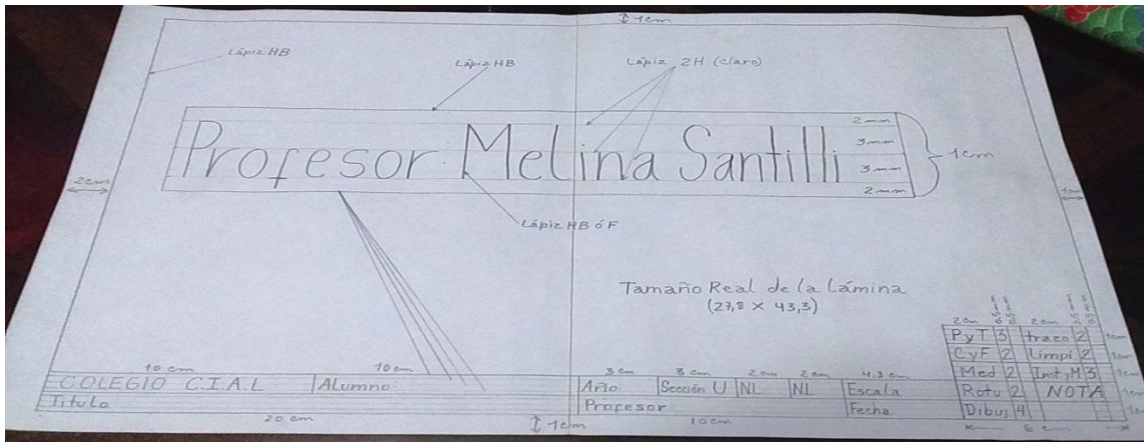 1cm
Lápiz HB
Lápiz HB
Lápiz 2H (claro)
Profesor Melina Santilli
2mm
3mm
3mm
2mm
1cm
2cm
1cm
Lápiz HB ó F
Tamaño Real de la Lámina
(27,8 x 43,3)
2cm 0,5mm 0,5mm 2cm 0,5mm 0,5mm
PyT 3 trazo 2 1cm
CyF 2 Limpi 2 1cm
Med 2 Inst,M 3 1cm
Rotu 2 NOTA 1cm
Dibuj 4 1cm
6 cm
10 cm 10cm 3 cm 3 cm 2cm 2cm 4,3 cm
COLEGIO C.I.A.L Alumno: Año: Sección U NL NL Escala
Titulo Profesor Fecha
20 cm 1cm 10cm